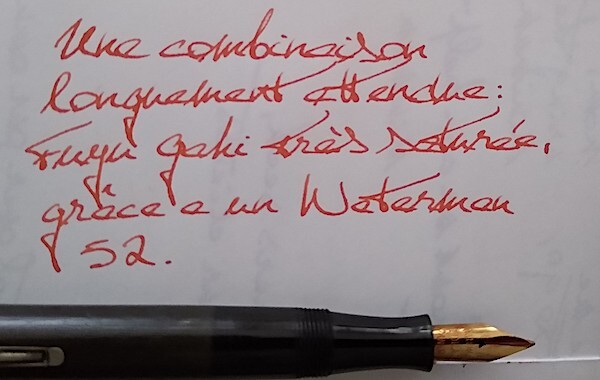 Une combinaison
longuement attendue:
Fuyu gaki très saturée,
grâce a un Waterman
52.